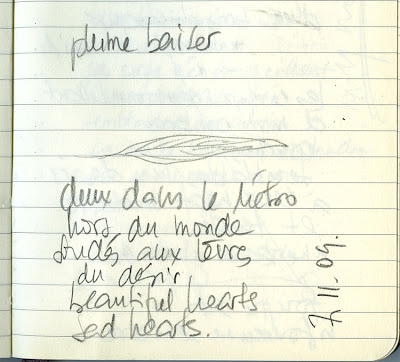 plume baiser
deux dans le métro
hors du monde
soudés aux lèvres
du désir
beautiful hearts
sed hearts.
7.11.09.